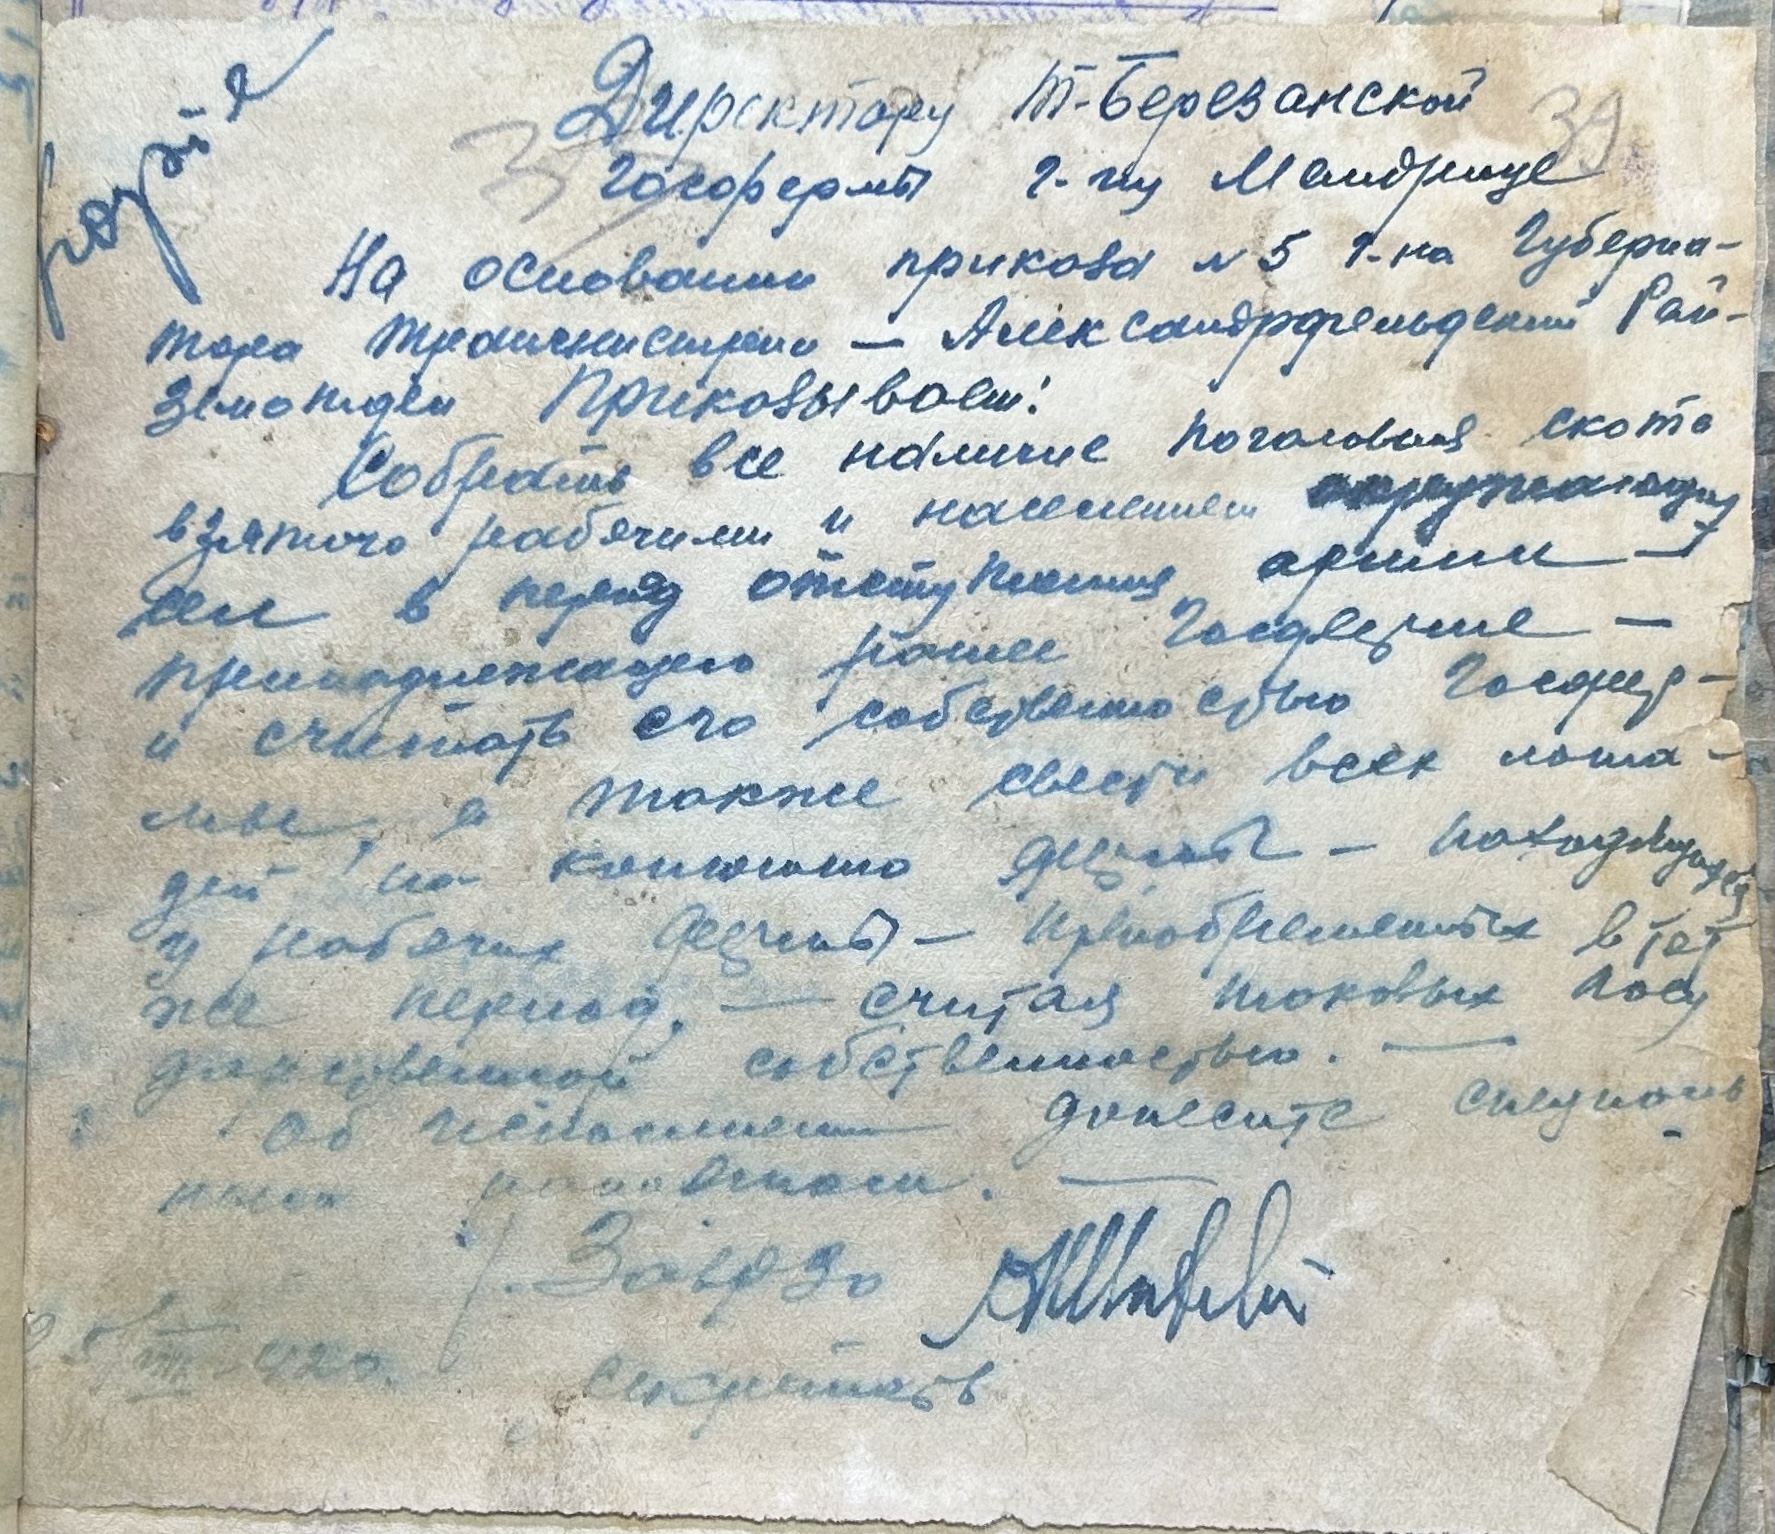 Директору Т-Березанской
Госфермы г-ну Мандрице
На основании приказа № 5 г-на Губерна-
тора Транснистрии — Александрфельдский Рай-
земотдел Приказывает:
Собрать все наличие поголовия скота
взятого рабочими и населением окружающих
сел в период отступления армии —
принадлежащего ранее Госферме —
и считать его собственностью Госфер-
мы, а также свести всех лоша-
дей на конюшню фермы — находящихся
у рабочих фермы — приобретенных в тот
же период, — считая таковых Госу
дарственной собственностью. —
Об исполнении донесите
нарочным. —
Заврзо
42 г. секретарь
39